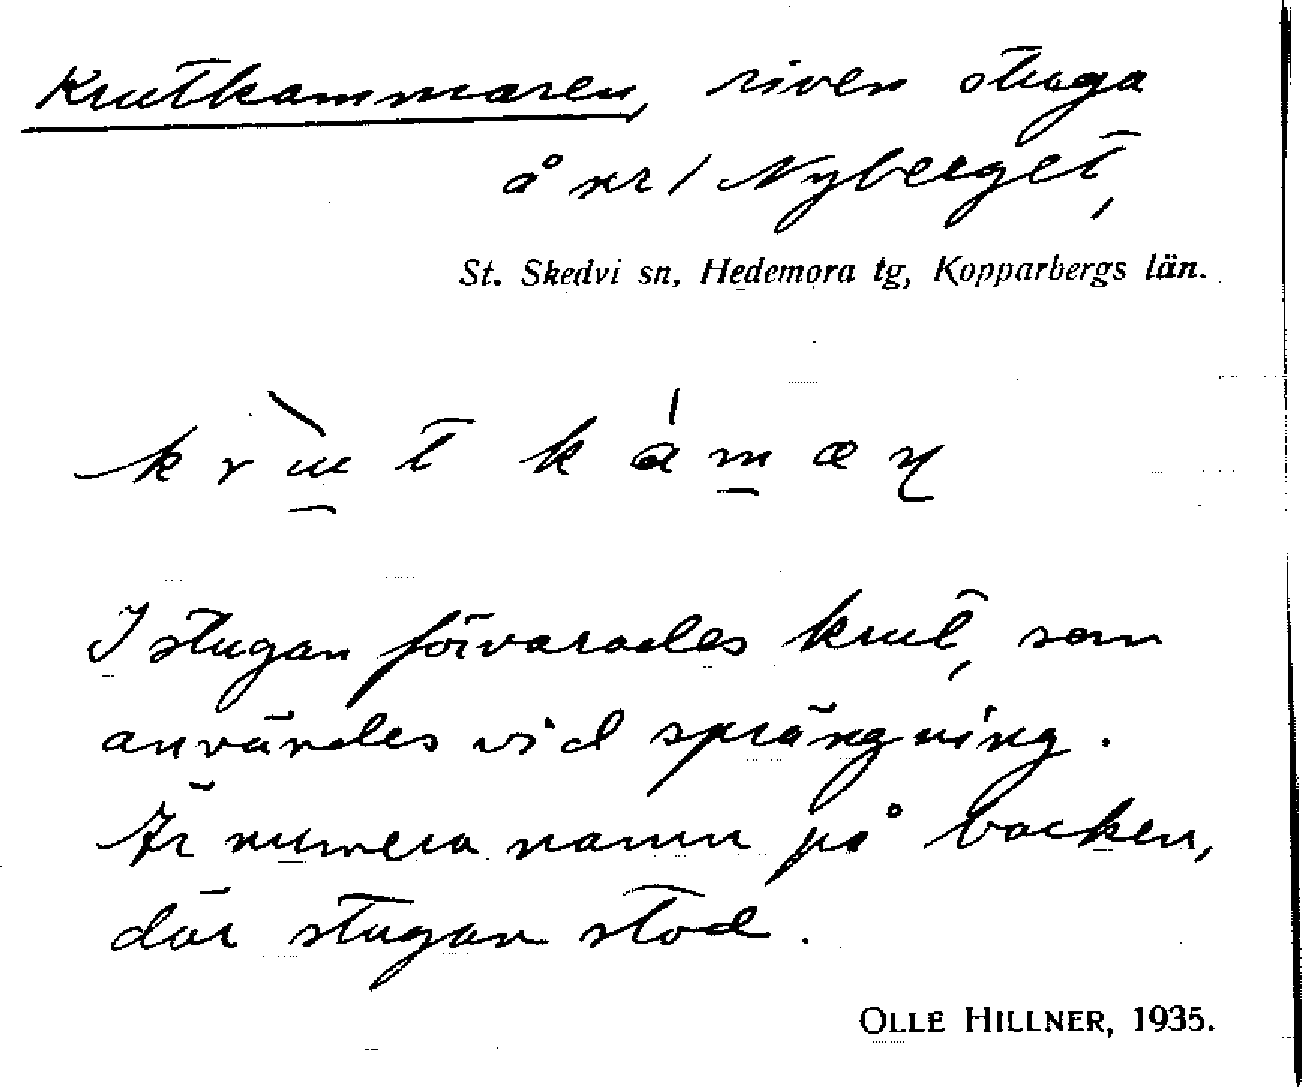 Krutkammaren, riven stuga
å nr 1 Nyberget,
St. Skedvi sn, Hedemora tg, Kopparbergs län.
krùtkámæn
I stugan förvarades krut, som
användes vid sprängning.
Är numera namn på backen,
där stugan stod.
OLLE HILLNER, 1935.